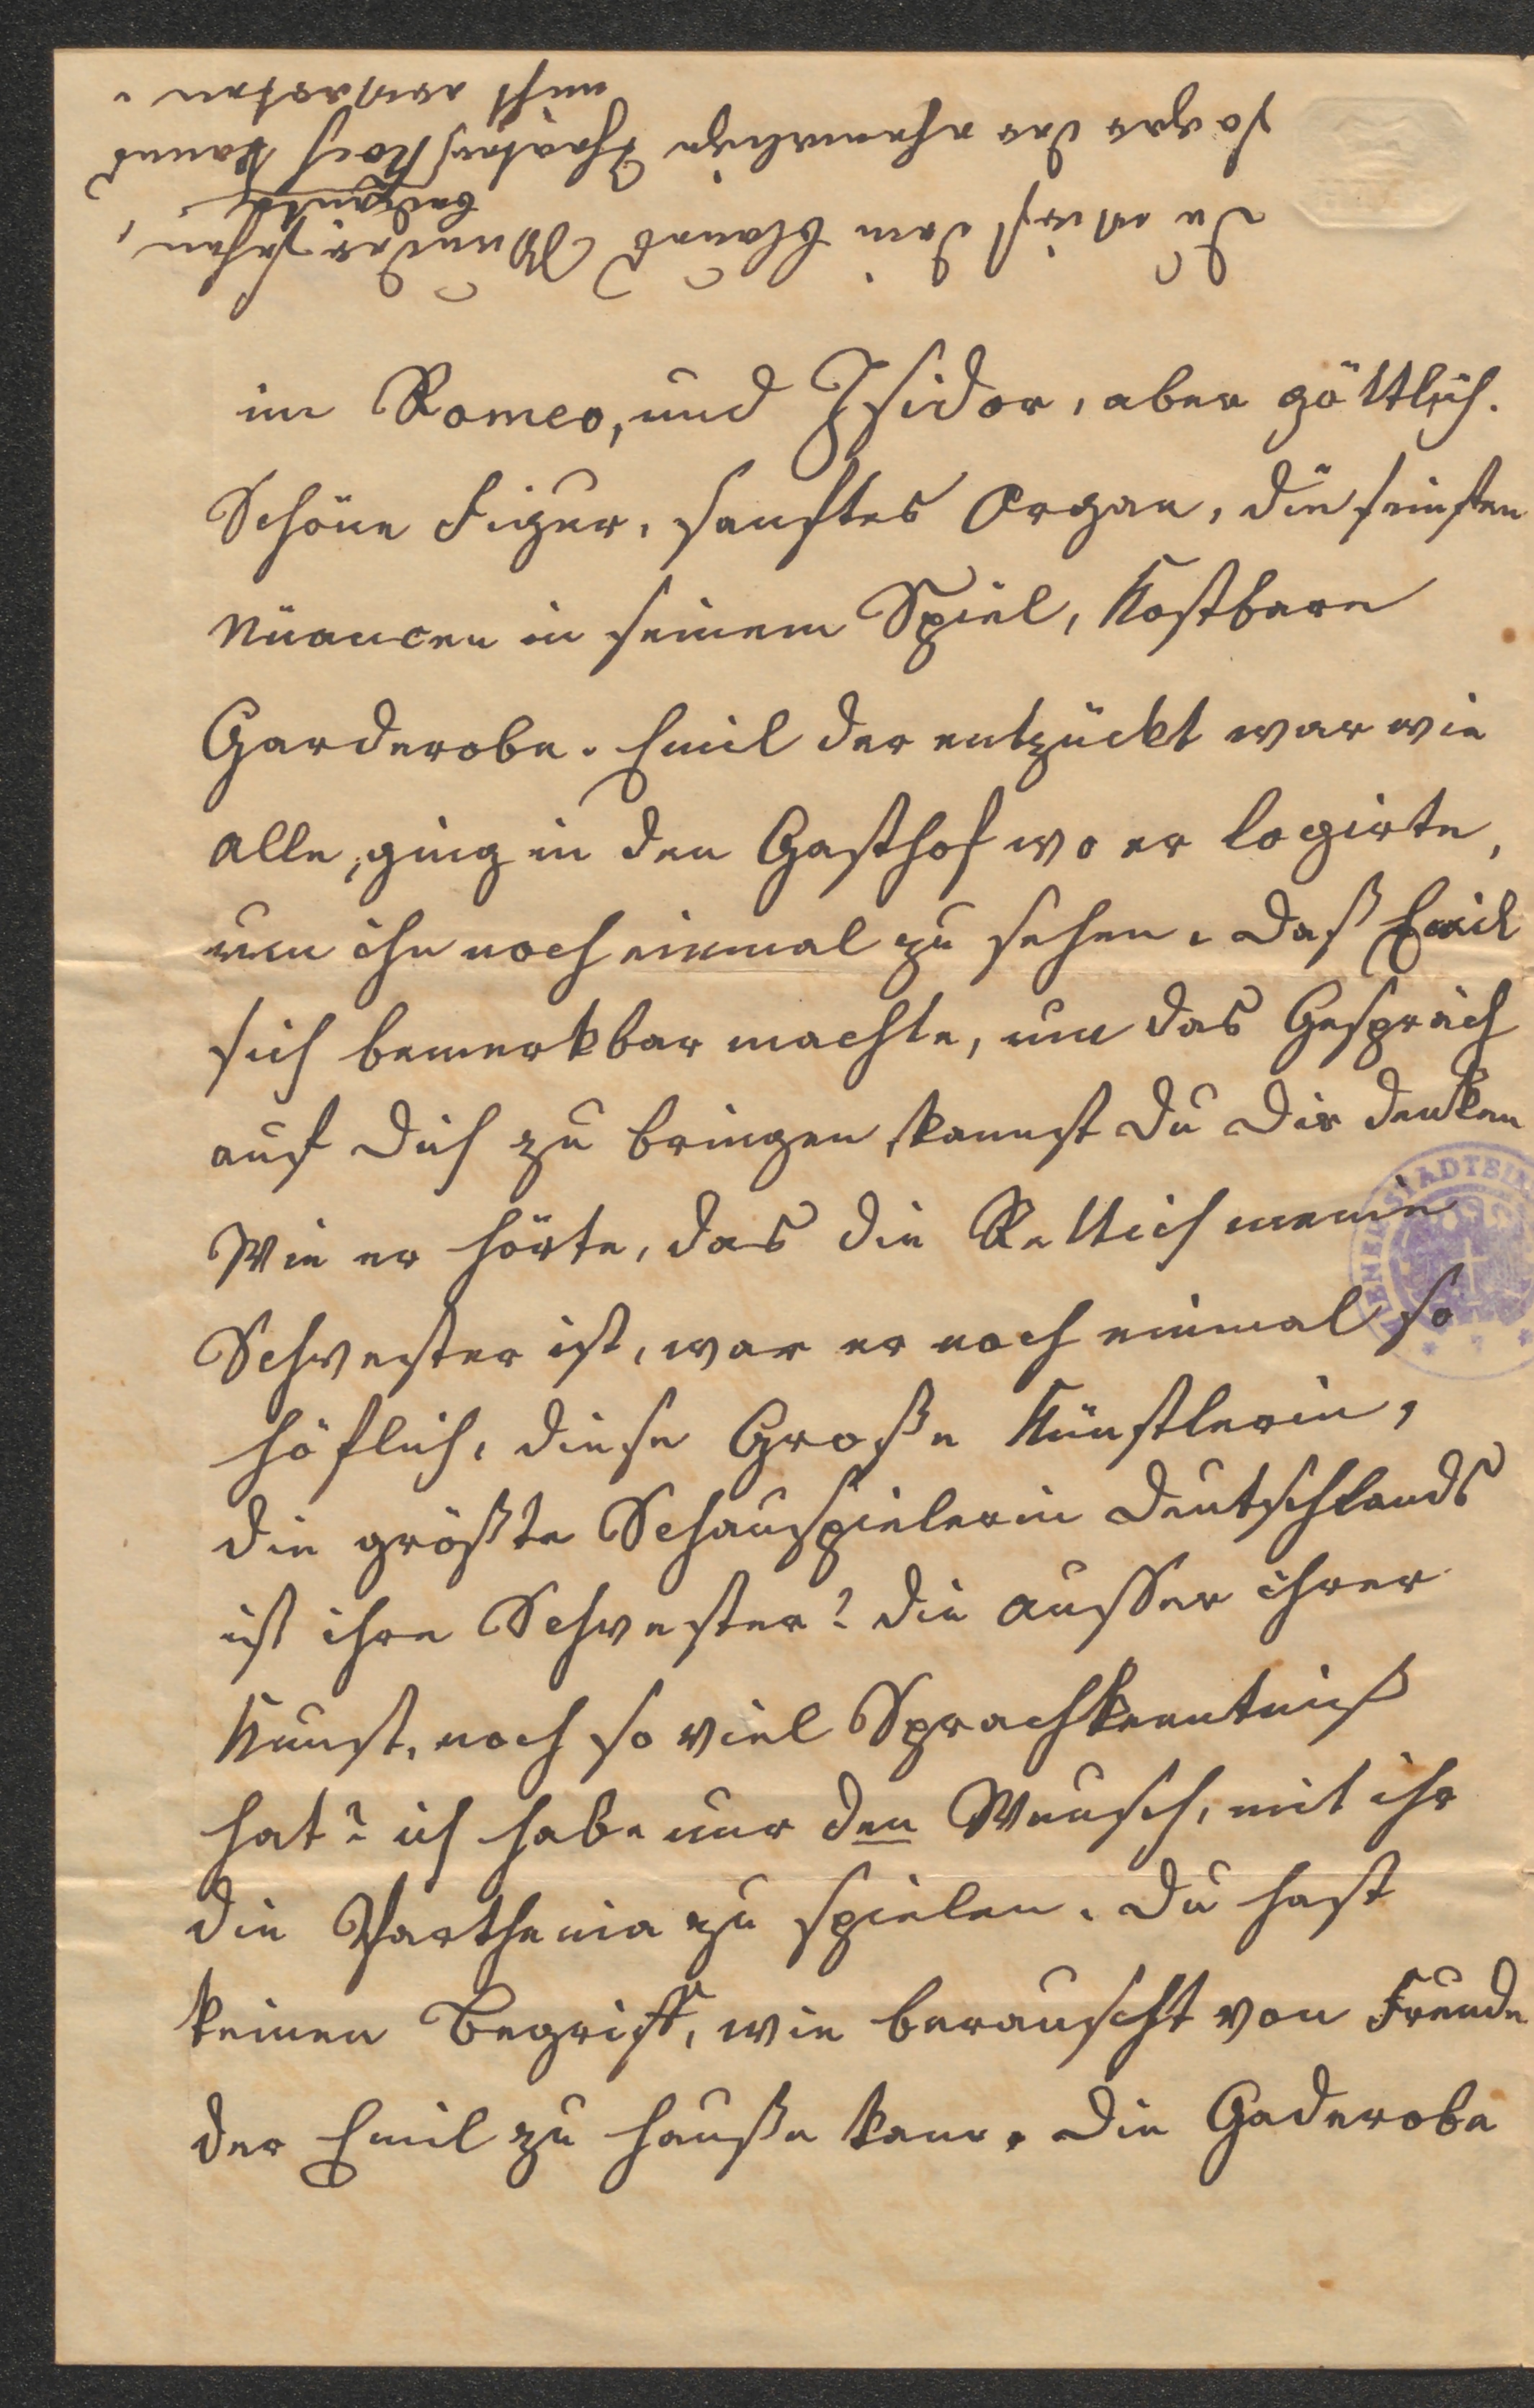 Du wirst dein blaues Wunder sehen,
sogar der ehemalige Theater Koch kann's
nicht erwarten.
im Romeo, und Isidor, aber göttlich.
Schöne Figur, sanftes Organ, die feinsten
Nüancen in seinem Spiel, Kostbare
Garderobe. Emil der entzückt war wie
alle, ging in den Gasthof wo er logirte,
um ihn noch einmal zu sehen. Daß Emil
sich bemerkbar machte, um das Gespräch
auf Dich zu bringen, kannst Du Dir denken
Wie er hörte, das die Rettich meine
Schwester ist, war er noch einmal so
höflich, diese Große Künstlerin,
die größte Schauspielerin Deutschlands
ist ihre Schwester? die ausser ihrer
Kunst, noch so viel Sprachkenntniß
hat? ich habe nur den Wunsch, mit ihr
die Parthenia zu spielen. Du hast
keinen Begriff, wie berauscht von Freude
der Emil zu Hauße kam. Die Gaderobe